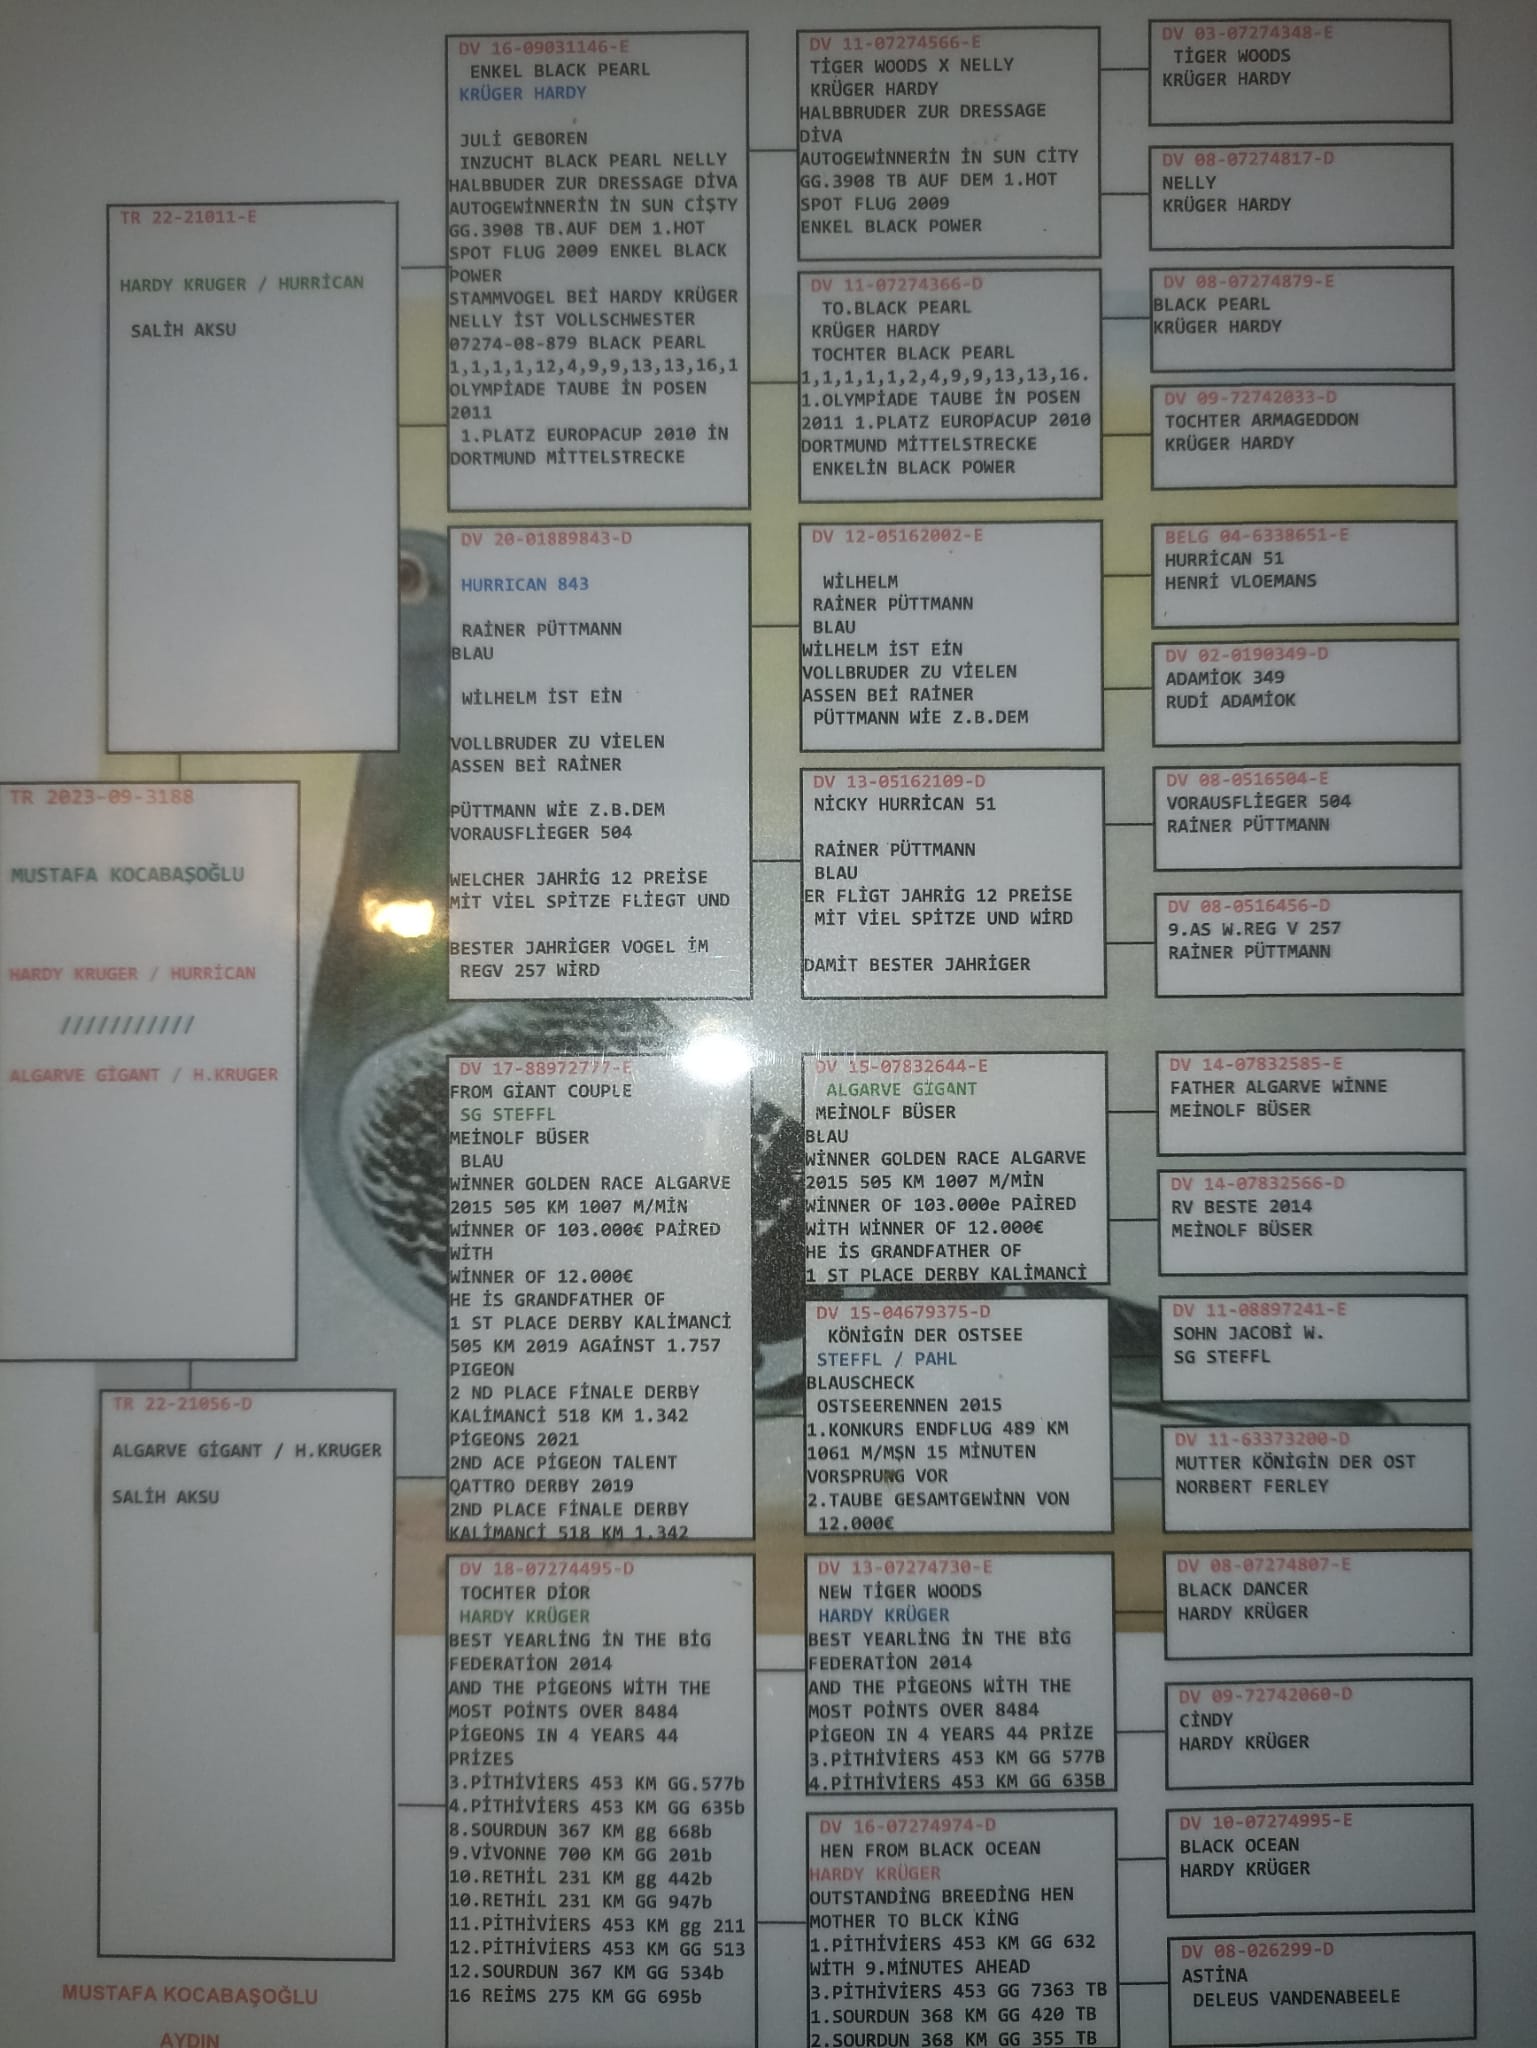 TR 2023-09-3188
MUSTAFA KOCABAŞOĞLU
HARDY KRUGER / HURRİCAN
///////////
ALGARVE GİGANT / H.KRUGER
TR 22-21011-E
HARDY KRUGER / HURRİCAN
SALİH AKSU
TR 22-21056-D
ALGARVE GİGANT / H.KRUGER
SALİH AKSU
MUSTAFA KOCABAŞOĞLU
AYDIN
DV 16-09031146-E
ENKEL BLACK PEARL
KRÜGER HARDY
JULİ GEBOREN
INZUCHT BLACK PEARL NELLY
HALBBUDER ZUR DRESSAGE DİVA
AUTOGEWİNNERİN İN SUN CİŞTY
GG.3908 TB.AUF DEM 1.HOT
SPOT FLUG 2009 ENKEL BLACK
POWER
STAMMVOGEL BEİ HARDY KRÜGER
NELLY İST VOLLSCHWESTER
07274-08-879 BLACK PEARL
1,1,1,1,12,4,9,9,13,13,16,1
OLYMPİADE TAUBE İN POSEN
2011
1.PLATZ EUROPACUP 2010 İN
DORTMUND MİTTELSTRECKE
DV 20-01889843-D
HURRICAN 843
RAİNER PÜTTMANN
BLAU
WİLHELM İST EİN
VOLLBRUDER ZU VİELEN
ASSEN BEİ RAINER
PÜTTMANN WİE Z.B.DEM
VORAUSFLİEGER 504
WELCHER JAHRİG 12 PREİSE
MİT VİEL SPİTZE FLİEGT UND
BESTER JAHRİGER VOGEL İM
REGV 257 WİRD
DV 17-88972777-E
FROM GİANT COUPLE
SG STEFFL
MEİNOLF BÜSER
BLAU
WİNNER GOLDEN RACE ALGARVE
2015 505 KM 1007 M/MİN
WİNNER OF 103.000€ PAİRED
WİTH
WİNNER OF 12.000€
HE İS GRANDFATHER OF
1 ST PLACE DERBY KALİMANCİ
505 KM 2019 AGAİNST 1.757
PIGEON
2 ND PLACE FİNALE DERBY
KALİMANCİ 518 KM 1.342
PİGEONS 2021
2ND ACE PİGEON TALENT
QATTRO DERBY 2019
2ND PLACE FİNALE DERBY
KALİMANCİ 518 KM 1.342
DV 18-07274495-D
TOCHTER DİOR
HARDY KRÜGER
BEST YEARLİNG İN THE BİG
FEDERATİON 2014
AND THE PİGEONS WİTH THE
MOST POİNTS OVER 8484
PİGEONS IN 4 YEARS 44
PRİZES
3.PİTHİVİERS 453 KM GG.577b
4.PİTHİVİERS 453 KM GG 635b
8.SOURDUN 367 KM gg 668b
9.VİVONNE 700 KM GG 201b
10.RETHİL 231 KM gg 442b
10.RETHİL 231 KM GG 947b
11.PİTHİVİERS 453 KM gg 211
12.PİTHİVİERS 453 KM GG 513
12.SOURDUN 367 KM GG 534b
16 REİMS 275 KM GG 695b
DV 11-07274566-E
TİGER WOODS X NELLY
KRÜGER HARDY
HALBBRUDER ZUR DRESSAGE
DİVA
AUTOGEWİNNERİN İN SUN CİTY
GG.3908 TB AUF DEM 1.HOT
SPOT FLUG 2009
ENKEL BLACK POWER
DV 11-07274366-D
TO.BLACK PEARL
KRÜGER HARDY
TOCHTER BLACK PEARL
1,1,1,1,1,2,4,9,9,13,13,16.
1.OLYMPİADE TAUBE İN POSEN
2011 1.PLATZ EUROPACUP 2010
DORTMUND MİTTELSTRECKE
ENKELİN BLACK POWER
DV 12-05162002-E
WİLHELM
RAINER PÜTTMANN
BLAU
WİLHELM İST EİN
VOLLBRUDER ZU VİELEN
ASSEN BEİ RAİNER
PÜTTMANN WİE Z.B.DEM
DV 13-05162109-D
NİCKY HURRİCAN 51
RAİNER PÜTTMANN
BLAU
ER FLİGT JAHRİG 12 PREİSE
MİT VİEL SPİTZE UND WİRD
DAMİT BESTER JAHRİGER
DV 15-07832644-E
ALGARVE GİGANT
MEİNOLF BÜSER
BLAU
WİNNER GOLDEN RACE ALGARVE
2015 505 KM 1007 M/MİN
WİNNER OF 103.000e PAİRED
WİTH WİNNER OF 12.000€
HE İS GRANDFATHER OF
1 ST PLACE DERBY KALİMANCİ
DV 15-04679375-D
KÖNİGİN DER OSTSEE
STEFFL / PAHL
BLAUSCHECK
OSTSEERENNEN 2015
1.KONKURS ENDFLUG 489 KM
1061 M/MŞN 15 MİNUTEN
VORSPRUNG VOR
2.TAUBE GESAMTGEWİNN VON
12.000€
DV 13-07274730-E
NEW TİGER WOODS
HARDY KRÜGER
BEST YEARLİNG İN THE BİG
FEDERATİON 2014
AND THE PİGEONS WİTH THE
MOST POİNTS OVER 8484
PİGEON İN 4 YEARS 44 PRİZE
3.PİTHİVİERS 453 KM GG 577B
4.PİTHİVİERS 453 KM GG 635B
DV 16-07274974-D
HEN FROM BLACK OCEAN
HARDY KRÜGER
OUTSTANDİNG BREEDİNG HEN
MOTHER TO BLCK KİNG
1.PİTHİVİERS 453 KM GG 632
WİTH 9.MİNUTES AHEAD
3.PİTHİVİERS 453 GG 7363 TB
1.SOURDUN 368 KM GG 420 TB
2.SOURDUN 368 KM GG 355 TB
DV 03-07274348-E
TİGER WOODS
KRÜGER HARDY
DV 08-07274817-D
NELLY
KRÜGER HARDY
DV 08-07274879-E
BLACK PEARL
KRÜGER HARDY
DV 09-72742033-D
TOCHTER ARMAGEDDON
KRÜGER HARDY
BELG 04-6338651-E
HURRİCAN 51
HENRİ VLOEMANS
DV 02-0190349-D
ADAMİOK 349
RUDİ ADAMİOK
DV 08-0516504-E
VORAUSFLİEGER 504
RAİNER PÜTTMANN
DV 08-0516456-D
9.AS W.REG V 257
RAİNER PÜTTMANN
DV 14-07832585-E
FATHER ALGARVE WİNNE
MEİNOLF BÜSER
DV 14-07832566-D
RV BESTE 2014
MEİNOLF BÜSER
DV 11-08897241-E
SOHN JACOBİ W.
SG STEFFL
DV 11-63373200-D
MUTTER KÖNİGİN DER OST
NORBERT FERLEY
DV 08-07274807-E
BLACK DANCER
HARDY KRÜGER
DV 09-72742060-D
CİNDY
HARDY KRÜGER
DV 10-07274995-E
BLACK OCEAN
HARDY KRÜGER
DV 08-026299-D
ASTİNA
DELEUS VANDENABEELE